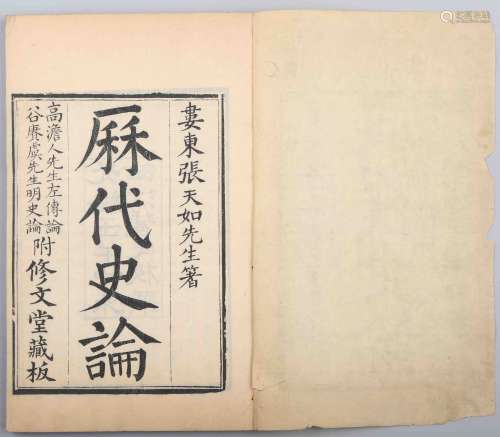 婁東張天如先生箸
厤代史論
高澹人先生左傳論
谷賡虞先生明史論
附修文堂藏板